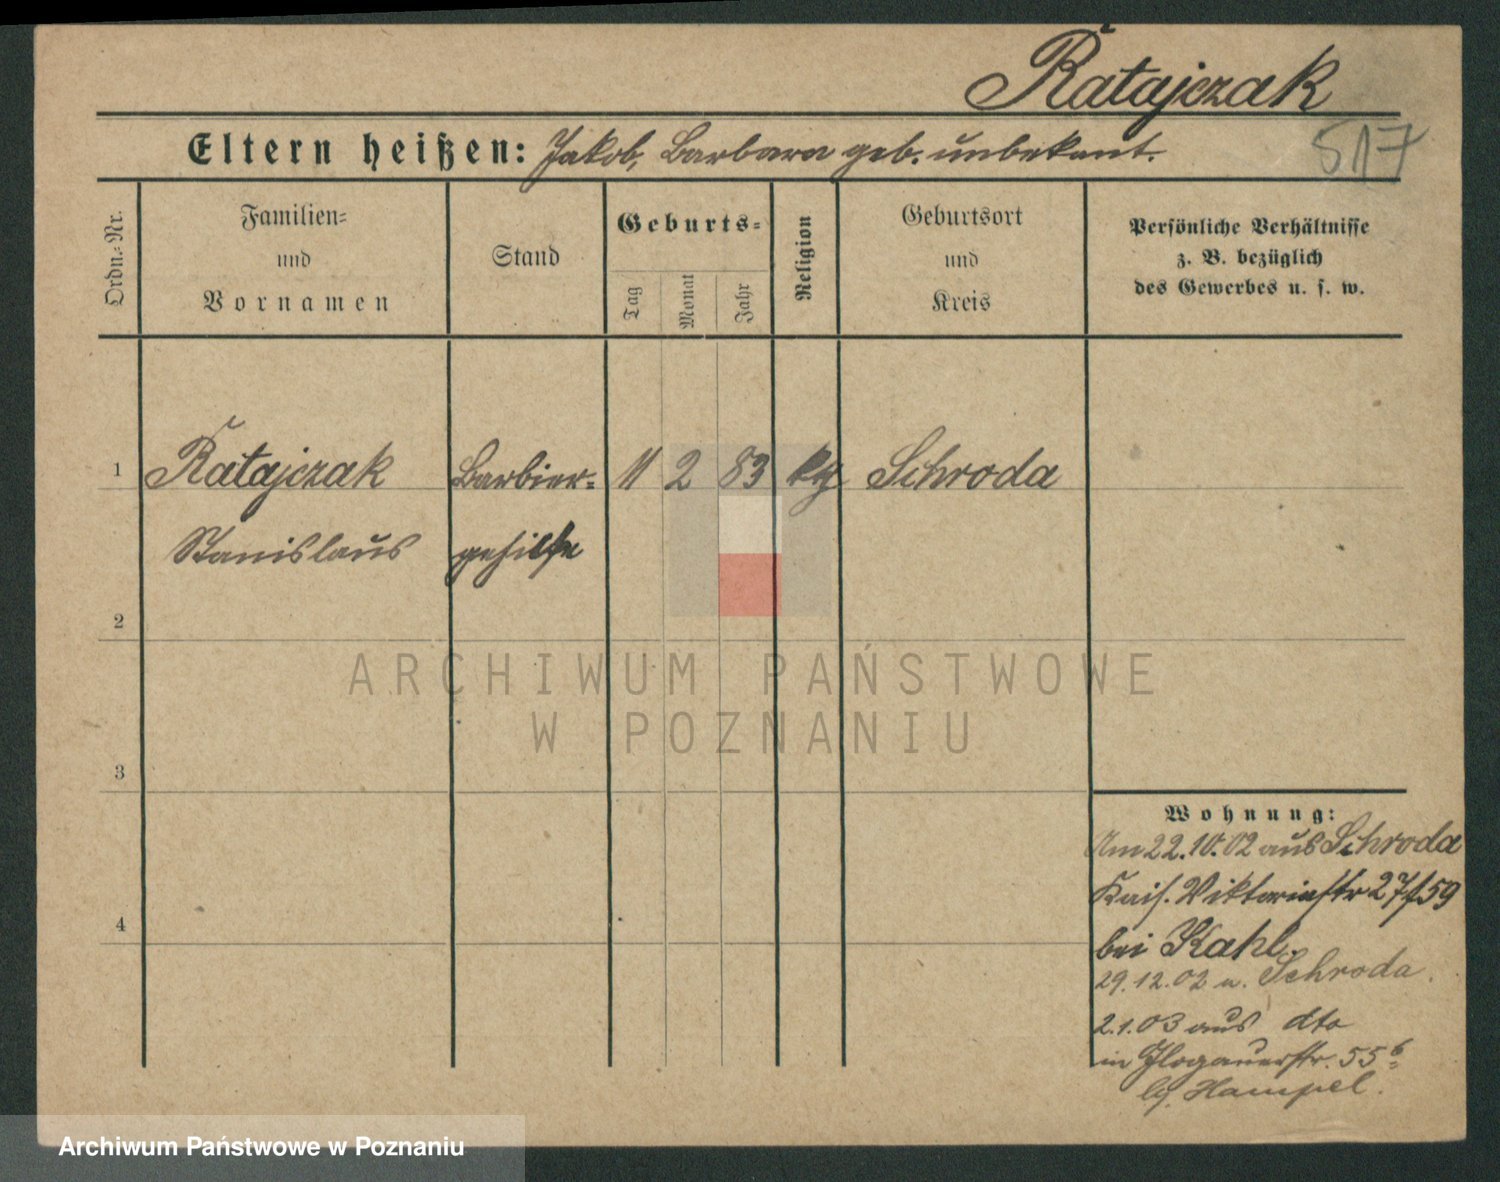 Ratajczak
517
Eltern heißen: Jakob, Barbara geb. unbekant.
Ordn.-Nr.
Familien-
und
Vornamen
Stand
Geburts-
Tag
Monat
Jahr
Religion
Geburtsort
und
Kreis
Persönliche Verhältnisse
z. B. bezüglich
des Gewerbes u. s. w.
1 Ratajczak Barbier- 11 2 83 ktg Schroda
Stanislaus gehilfe
2
3
4
ARCHIWUM PAŃSTWOWE
W POZNANIU
Wohnung:
Am 22.10.02 aus Schroda
Kais. Viktoriastr 27/59
bei Kahl.
29.12.02 n. Schroda.
2.1.03 aus dto
in Glogauerstr. 55
Hampel.
Archiwum Państwowe w Poznaniu